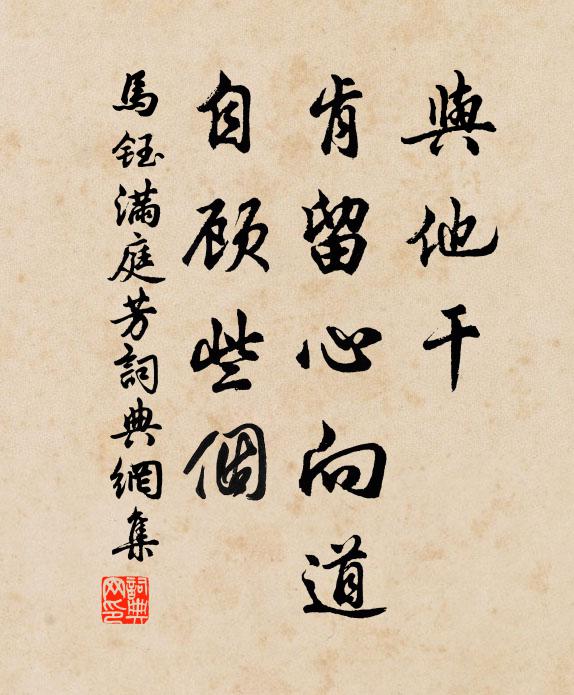 與他干
肯留心向道
自顧些個
馬鈺满庭芳詞典網集
詞典网印